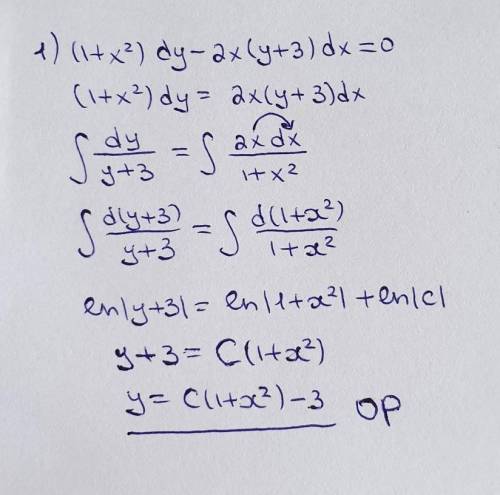 1) (1+x²) dy – 2x(y+3) dx = 0
(1+x²) dy = 2x(y+3)dx
∫ dy/(y+3) = ∫ 2x dx/(1+x²)
∫ d(y+3)/(y+3) = ∫ d(1+x²)/(1+x²)
ln|y+3| = ln|1+x²| + ln|c|
y+3 = C(1+x²)
y = C(1+x²)–3 ОР